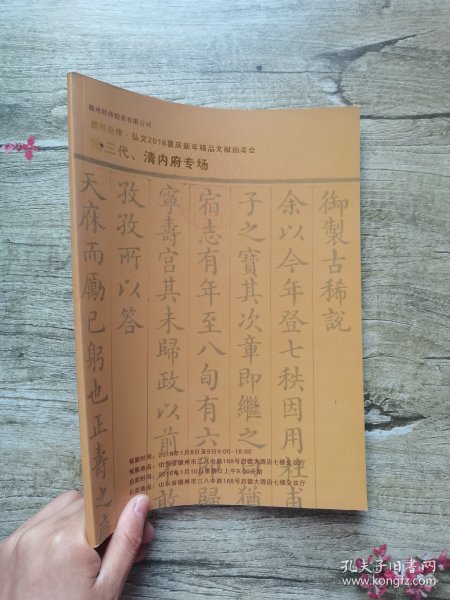 德州经伟拍卖有限公司
德州经伟·弘文2016喜庆新年精品文献拍卖会
清三代、清内府专场
御製古稀說
余以今年登七秩因用杜甫
子之寶其次章即繼之猶
宿志有年至八旬有六歸
寧壽宮其未歸政以前敢
孜孜所以答
天庥而勵已躬也正壽之
预展时间：2016年1月8日至9日9:00-18:00
预展地点：山东省德州市三八中路168号启德大酒店七楼会议厅
拍卖时间：2016年1月10日星期日上午9:00开始
拍卖地点：山东省德州市三八中路168号启德大酒店七楼会议厅
孔夫子旧书网
www.kongfz.com